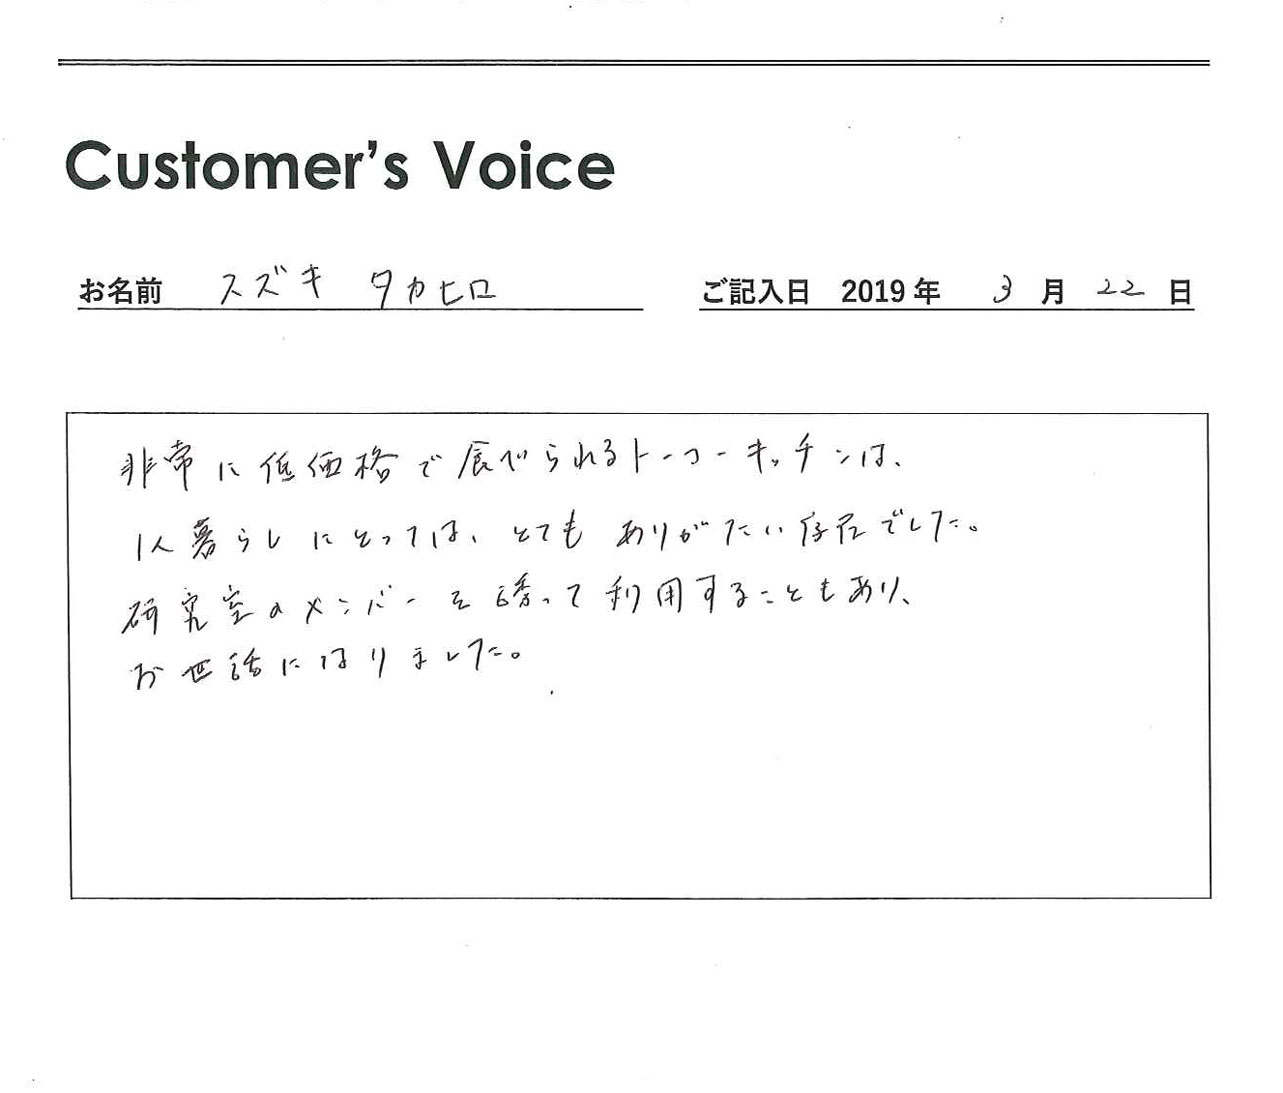 Customer's Voice
お名前 スズキ タカヒロ
ご記入日 2019年 3月 22日
非常に低価格で食べられるトーコーキッチンは、
1人暮らしにとっては、とてもありがたい存在でした。
研究室のメンバーを誘って利用することもあり、
お世話になりました。